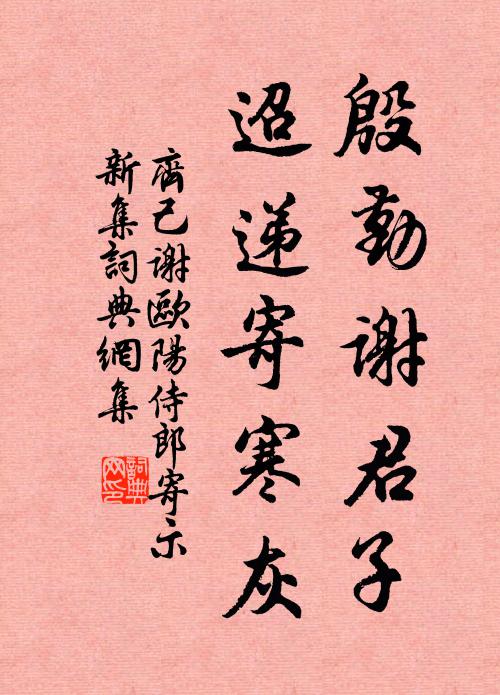 殷勤謝君子
迢遞寄寒灰
齊己謝歐陽侍郎寄示
新集詞典網集
詞典网印